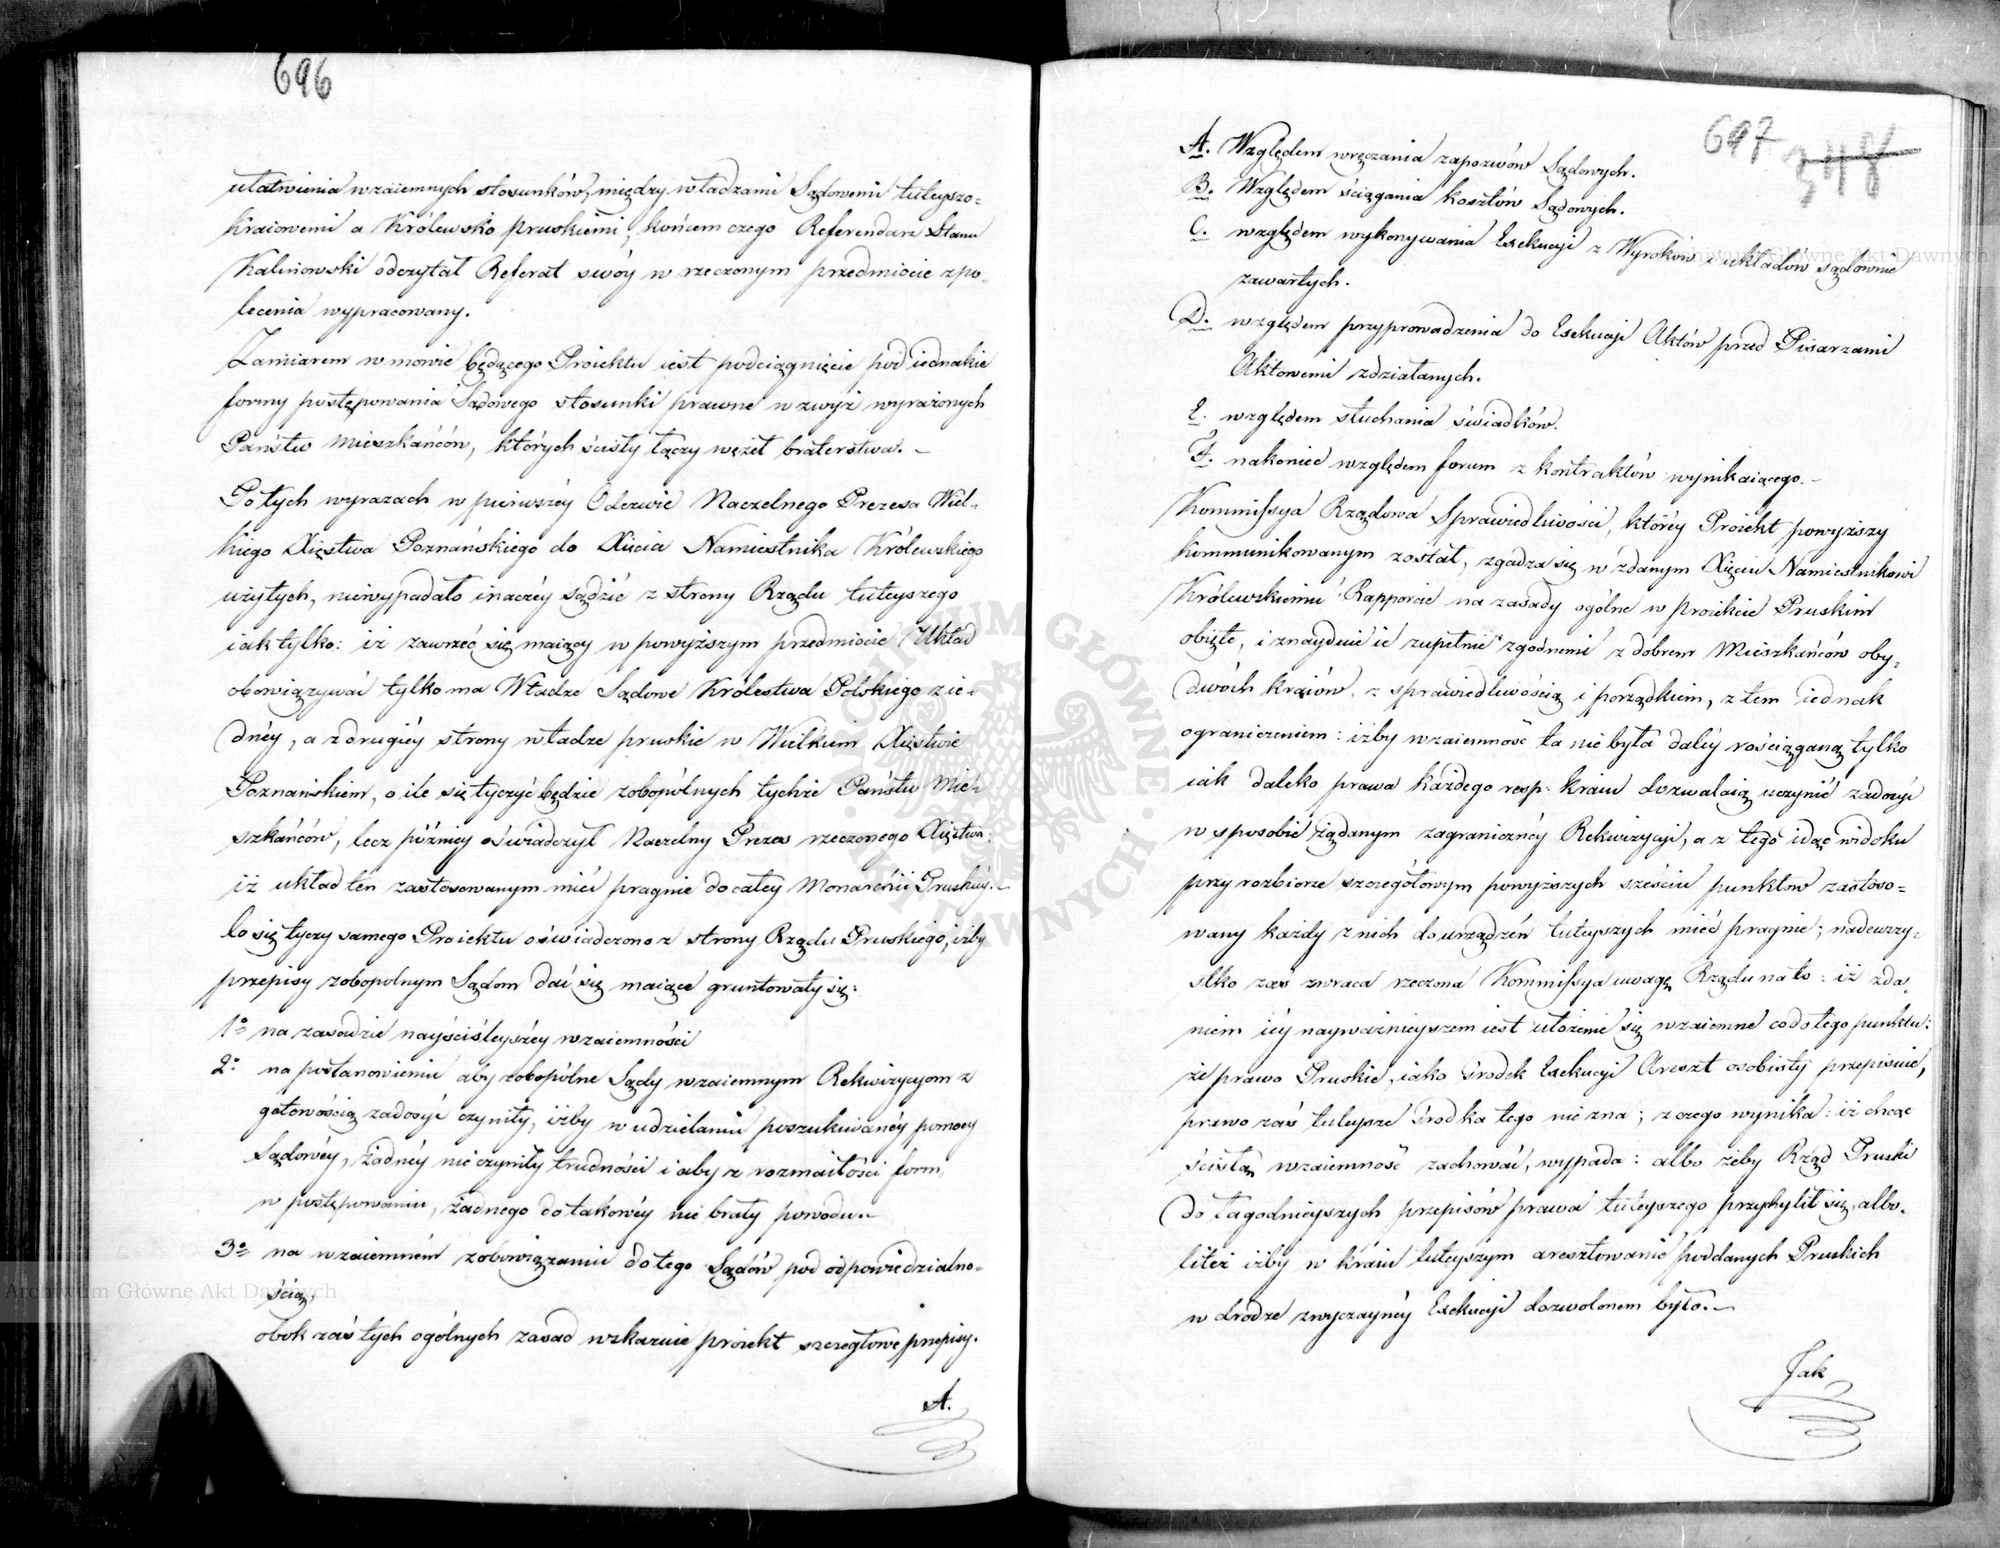 696
ułatwienia wzaiemnych stosunków, między władzami Sądowemi tuteyszo=
kraiowemi a Królewsko pruskiemi, końcem czego Referendarz Stanu
Kalinowski odczytał Referat swóy w rzeczonym przedmiocie z po=
lecenia wypracowany.
Zamiarem w mowie będącego Proiektu iest podciągnięcie pod iednakie
formy postępowania Sądowego stosunki prawne w zwyż wyrażonych
Państw Mieszkańców, których ścisły łączy węzeł braterstwa. –
Po tych wyrazach w pierwszéy Odezwie Naczelnego Prezesa Wiel=
kiego Xięstwa Poznańskiego do Xięcia Namiestnika Królewskiego
użytych, niewypadało inaczéy sądzić z strony Rządu tuteyszego
iak tylko: iż zawrzeć się maiący w powyższym przedmiocie Układ
obowiązywać tylko ma Władze Sądowe Królestwa Polskiego z ie=
dnéy, a z drugiéy strony władze pruskie w Wielkiem Xięstwie
Poznańskiem, o ile się tyczyć będzie zobopólnych tychże Państw Mie=
szkańców, lecz późniey oświadczył Naczelny Prezes rzeczonego Xięstwa:
iż układ ten zastosowanym mieć pragnie do całey Monarchii Pruskiéy. –
Co się tyczy samego Proiektu oświadczono z strony Rządu Pruskiego, iżby
przepisy zobopolnym Sądom dać się maiące gruntowały się:
1o na zasadzie nayściśleyszéy wzaiemności
2o na postanowieniu aby zobopólne Sądy wzaiemnym Rekwizycyom z
gotowością zadosyć czyniły, iżby w udzielaniu poszukiwanéy pomocy
Sądowéy, żadnéy nie czyniły trudności i aby z rozmaitości form,
w postępowaniu, żadnego do takowéy nie brały powodu. –
3o na wzaiemném zobowiązaniu do tego Sądów pod odpowiedzialno=
ścią,
obok zaś tych ogólnych zasad wskazuie proiekt szczegłowe przepisy.
A.
697
348
A. Względem wręczania zapozwów Sądowych.
B. Względem ściągania kosztów Sądowych.
C. względem wykonywania Exekucyi z Wyroków i układów sądownie
zawartych.
D. względem przyprowadzenia do Exekucyi Aktów przed Pisarzami
Aktowemi zdziałanych.
E. względem słuchania świadków.
F. nakoniec względem forum z kontraktów wynikaiącego. –
Kommissya Rządowa Sprawiedliwości, któréy Proiekt powyższy
kommunikowanym został, zgadza się w zdanym Xięciu Namiestnikowi
Królewskiemu Rapporcie na zasady ogólne w proiekcie Pruskim
obięte, i znayduie ie zupełnie zgodnemi z dobrem Mieszkańców oby=
dwóch kraiów, z sprawiedliwością i porządkiem, z tem iednak
ograniczeniem: iżby wzaiemność ta nie była daléy rościąganą tylko
iak daleko prawa każdego resp: kraiu dozwalaią uczynić zadosyć
w sposobie żądanym zagraniczney Rekwizycyi, a z tego idąc widoku
przy rozbiorze szczegółowym powyższych sześciu punktów zastoso=
wany każdy z nich do urządzeń tuteyszych mieć pragnie; nadewszy=
stko zaś zwraca rzeczona Kommissya uwagę Rządu na to: iż zda=
niem iéy nayważnieyszem iest ułożenie się wzaiemne co do tego punktu:
że prawo Pruskie, iako środek Exekucyi Areszt osobisty przepisuie,
prawo zaś tuteysze środka tego nie zna; z czego wynika: iż chcąc
ścisłą wzaiemność zachować, wypada: albo żeby Rząd Pruski
do łagodnieyszych przepisów prawa tuteyszego przychylił się, albo=
liteż iżby w kraiu tuteyszym aresztowanie poddanych Pruskich
w drodze zwyczaynéy Exekucyi dozwolonem było. –
Jak
Archiwum Główne Akt Dawnych
ARCHIWUM GŁÓWNE AKT DAWNYCH